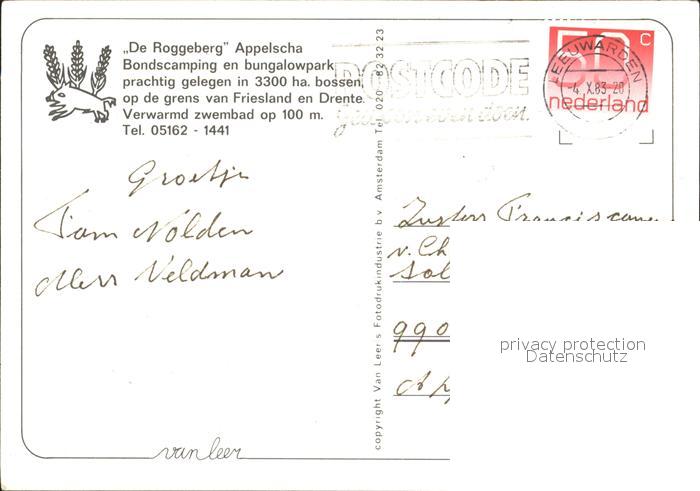 „De Roggeberg" Appelscha
Bondscamping en bungalowpark
prachtig gelegen in 3300 ha. bossen,
op de grens van Friesland en Drente.
Verwarmd zwembad op 100 m.
Tel. 05162 - 1441
POSTCODE
gewoon even doen.
LEEUWARDEN
-4.X.83-20
50 c
nederland
Groetjes
Tom Nolden
Merr Veldman
Zusters Franciscanes
v. Ch
Sol
990
Ap
copyright Van Leer's Fotodrukindustrie b.v. Amsterdam Tel. 020 - 82 32 23
van leer
privacy protection
Datenschutz